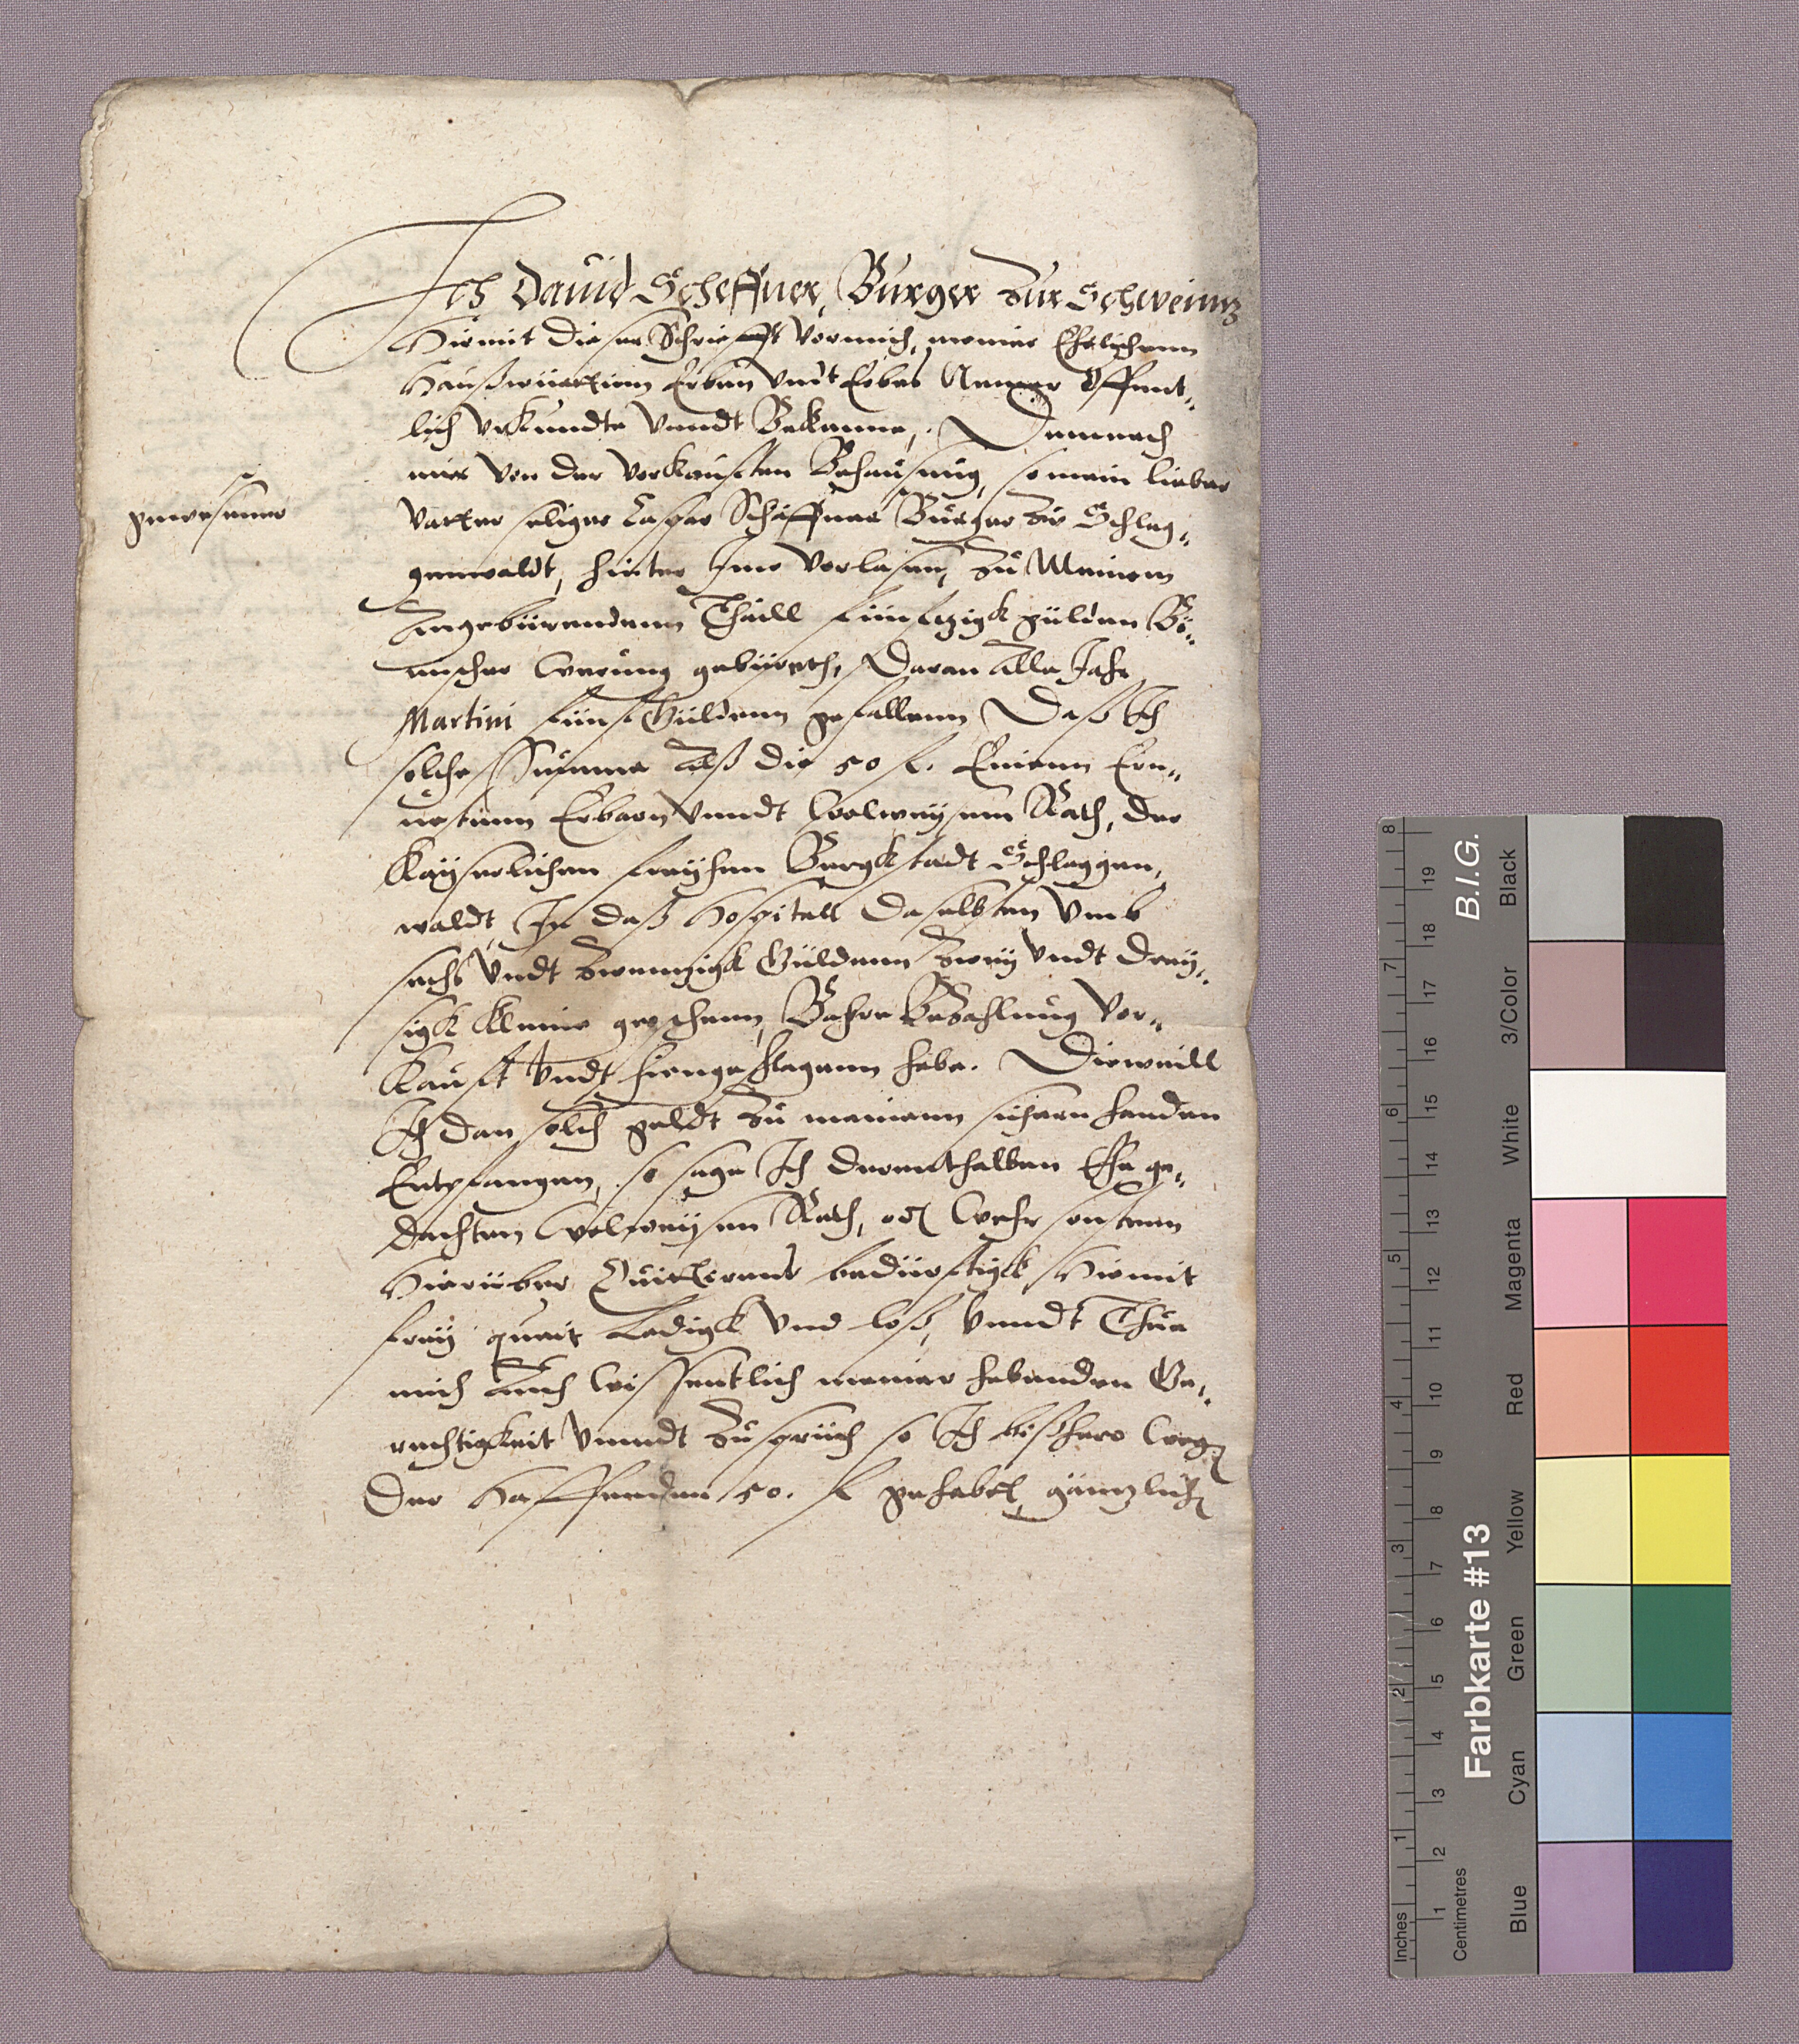 Ich Dauid Scheffner, Burger Zur Schweinnz
Hiemit dieser Schriefft vor mich, meiner Ehelichenn
Haußwüerttinn Erben vndt Erbes Nemer Offent„
lich vrkundte vnndt Bekenne, Demnach
mir von der verkaufften Behausung, so mein lieber
gewesener
vatter seliger Caspar Schäffner Burger zu Schlag„
genwaldt, hinter Ime verlasen, Zu Meinem
Angebüerendenn Theill fünfftzigk gülden Bö„
mischer Werung gebüreth, Daran Alle Jahr
Martini fünff Güldenn gefallenn Daß Ich
solche Summa Alß die 50 f. Einenn Ern„
uestenn Erbarn vnndt Wolweysenn Rath, der
Kayserlichen freyhen Bergkstadt Schlaggen„
waldt, In daß Hospitall Daselbsten vmb
sechs vndt Zwenzigk Güldenn Zwey vndt Drey„
sigk Kleine groschenn, Bahre Bezahlung ver„
Kaufft vndt hiengeschlagenn habe. Dieweill
Ich dan solch geldt Zu meinenn sichern handen
Entpfangen, so sage Ich derenthalben Ehege„
dachten Wolweysen Rath, oder Wehr sonstenn
Hierüber Quittierens bedürfftigk Hiemit
frey queit Ledigk vnd loß, vnndt Thue
mich Auch Wissentlich meiner habenden Ge„
rechtigkeit vnndt Zuspruch so Ich bißhero Wegen
Der Hafftenden 50. f gehabet, gäntzlich